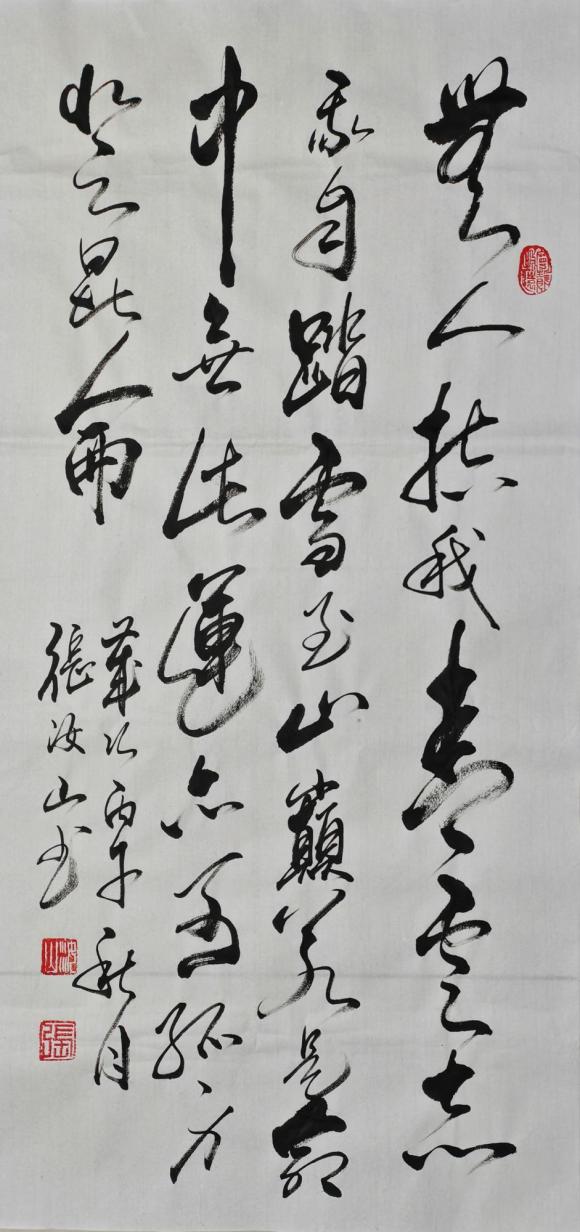 無人扶我青雲志
我自踏雪至山巔若是命
中無此運亦孤
昆侖
歲次丙午秋月
張汝山書
汝山
張